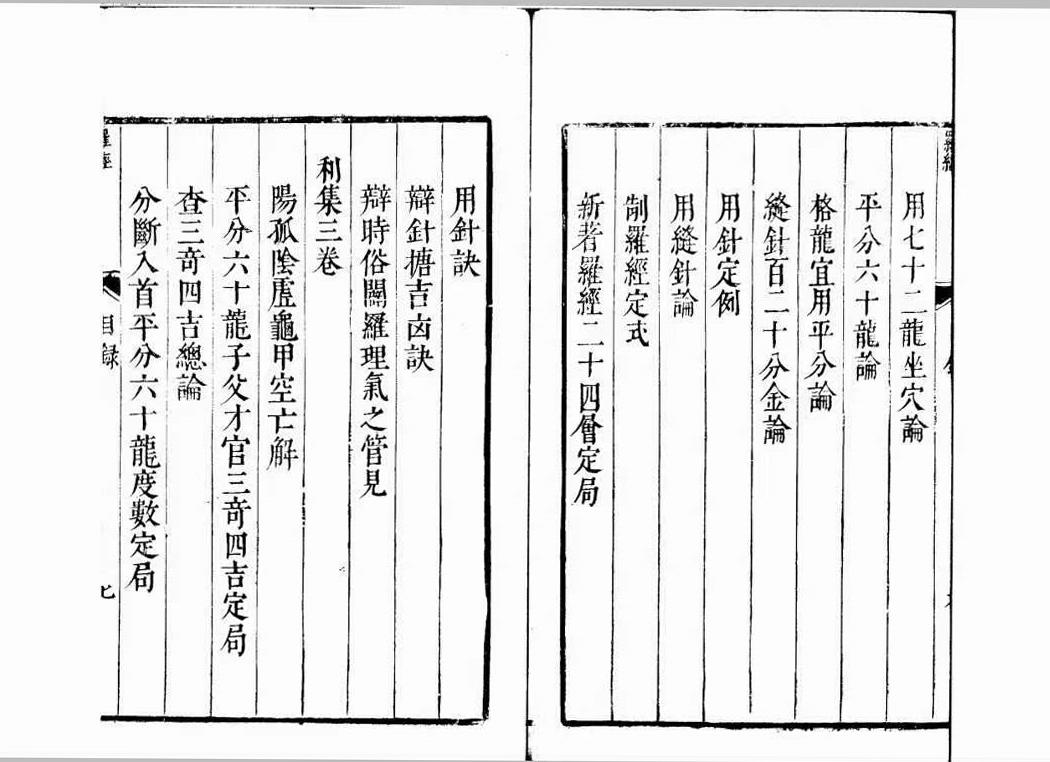 用七十二龍坐穴論
平分六十龍論
格龍宜用平分論
縫針百二十分金論
用針定例
用縫針論
制羅經定式
新著羅經二十四層定局
用針訣
辯針搪吉凶訣
辯時俗闢羅理氣之管見
利集三卷
陽孤陰虛龜甲空亡解
平分六十龍子父才官三奇四吉定局
查三奇四吉總論
分斷入首平分六十龍度數定局
羅經
目録
七